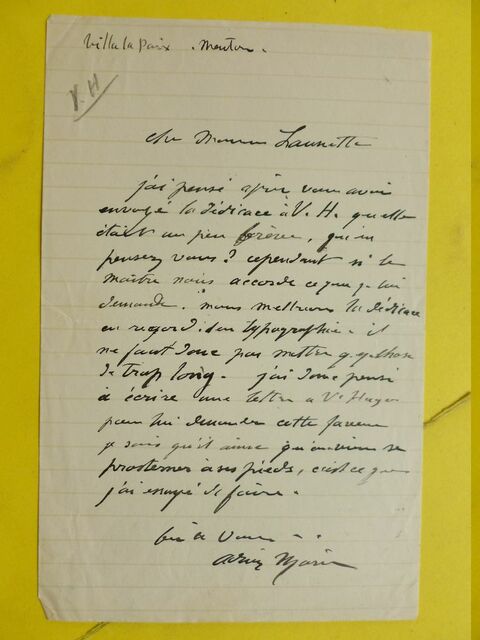 Villa la Paix . Menton .
V. H
Cher Monsieur Launette
j'ai pensé après vous avoir
envoyé la dédicace à V. H. qu'elle
était un peu brève, qu'en
pensez vous ? cependant si le
maître nous accorde ce que je lui
demande . nous mettrons la dédicace
en regard . d'un typographie . il
ne faut donc pas mettre q.q. chose
de trop long . j'ai donc pensé
à écrire une lettre à Vr Hugo
pour lui demander cette faveur
je sais qu'il aime qu'on vienne se
prosterner à ses pieds, c'est ce que
j'ai essayé de faire .
bien à vous . .
Adrien Marie